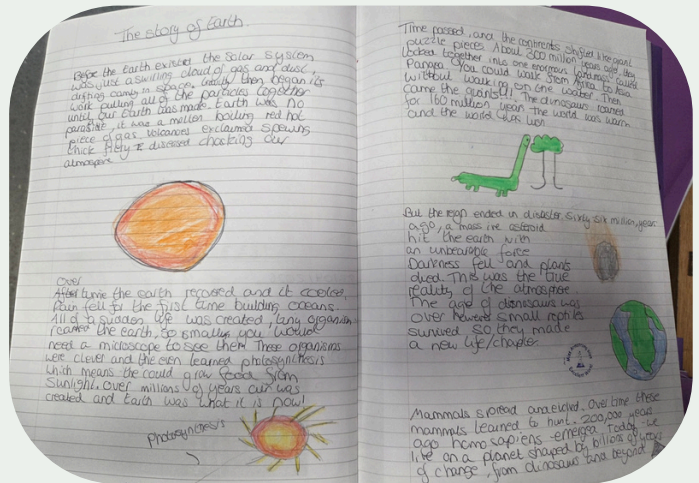 The story of Earth
Before the Earth existed the Solar System
was just a swirling cloud of gas and dust,
drifting calmly in space. Gravity then began its
work pulling all of the particles together
until our Earth was made. Earth was no
paradise, it was a molten boiling red hot
piece of gas volcanoes exclaimed spewing
thick fiery & diseased choking our
atmospere
Over
After time the earth recoverd and it cooled.
Rain fell for the first time building oceans.
All of a sudden life was created, tany organism
roamed the earth, so smalley you would
need a microscope to see them. These organisms
were clever and the even learned photosynthesis
which means the could grow food from
sunlight. Over millions of years our was
created and Earth was what it is now!
Photosynthesis
Time passed, and the continents shifted like giant
puzzle pieces. About 300 million years ago, they
locked together into one enormous landmass called
Pangea. You could walk from Africa to Asia
without walking on the water. Then
came the giants!! The dinosaurs roamed
for 160 million years. The world was warm
and the world was
But the reign ended in disaster. Sixty six million years
ago, a mass ive asteroid
hit the earth with
an unbearable force
Darkness fell and plants
dyed. This was the true
reality of the atmospere.
The age of dionosaurs was
over however small reptiles
survived so they made
a new life/chapter.
Mammals spread and evolved. Over time these
mammals learned to hunt. 200,000 years
ago homo sapiens emerged. Today we
live on a planet shaped by billions of years
of change, from dinosaurs and beyond